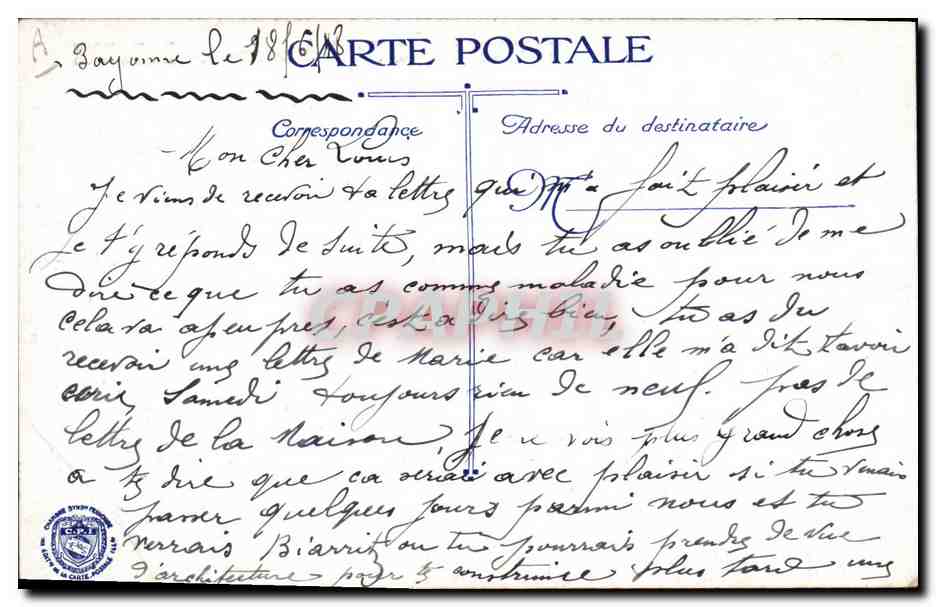 A
Bayonne le 18/6/18
CARTE POSTALE
Correspondance
Adresse du destinataire
Mon Cher Louis
M
Je viens de recevoir ta lettre qui m'a fait plaisir et
je t'y réponds de suite, mais tu as oublié de me
dire ce que tu as comme maladie pour nous
cela va apeupres, c'est a dire bien, tu as du
recevoir une lettre de Marie car elle m'a dit t'avoir
ecrit Samedi toujours rien de neuf. pas de
lettre de la Maison, Je ne vois plus grand chose
a te dire que ca serait avec plaisir si tu venais
passer quelques jours parmi nous et tu
verrais Biarritz ou tu pourrais prendre de vue
d'architecture pour te construire plus tard une
CHAMBRE SYNDle FRANÇAISE
C.P.I
DES EDITrs DE LA CARTE POSTALE ILLTÉE
CPAPHIL